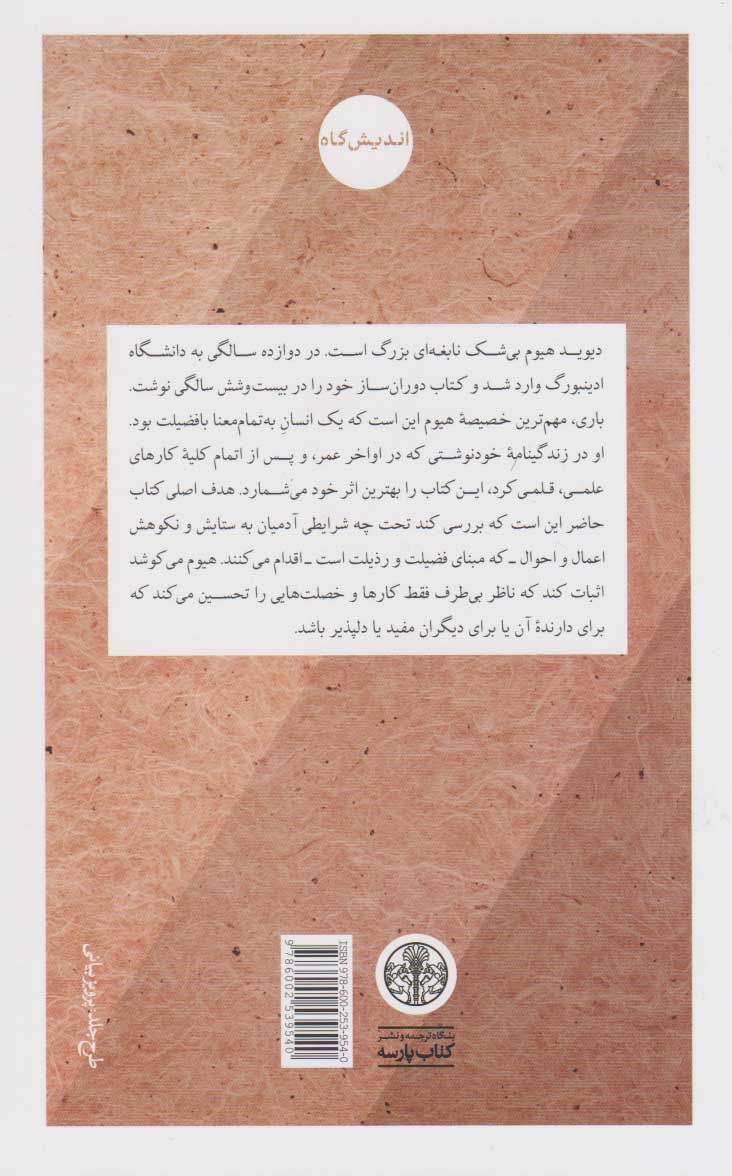 اندیش‌گاه
دیوید هیوم بی‌شک نابغه‌ای بزرگ است. در دوازده سالگی به دانشگاه
ادینبورگ وارد شد و کتاب دوران‌ساز خود را در بیست‌وشش سالگی نوشت.
باری، مهم‌ترین خصیصهٔ هیوم این است که یک انسانِ به‌تمام‌معنا بافضیلت بود.
او در زندگینامهٔ خودنوشتی که در اواخر عمر، و پس از اتمام کلیهٔ کارهای
علمی، قلمی کرد، این کتاب را بهترین اثر خود می‌شمارد. هدف اصلی کتاب
حاضر این است که بررسی کند تحت چه شرایطی آدمیان به ستایش و نکوهش
اعمال و احوال ــ که مبنای فضیلت و رذیلت است ــ اقدام می‌کنند. هیوم می‌کوشد
اثبات کند که ناظر بی‌طرف فقط کارها و خصلت‌هایی را تحسین می‌کند که
برای دارندهٔ آن یا برای دیگران مفید یا دلپذیر باشد.
طرح جلد: پرویز بیانی
ISBN 978-600-253-954-0
9 786002 539540
بنگاه ترجمه و نشر
کتاب پارسه